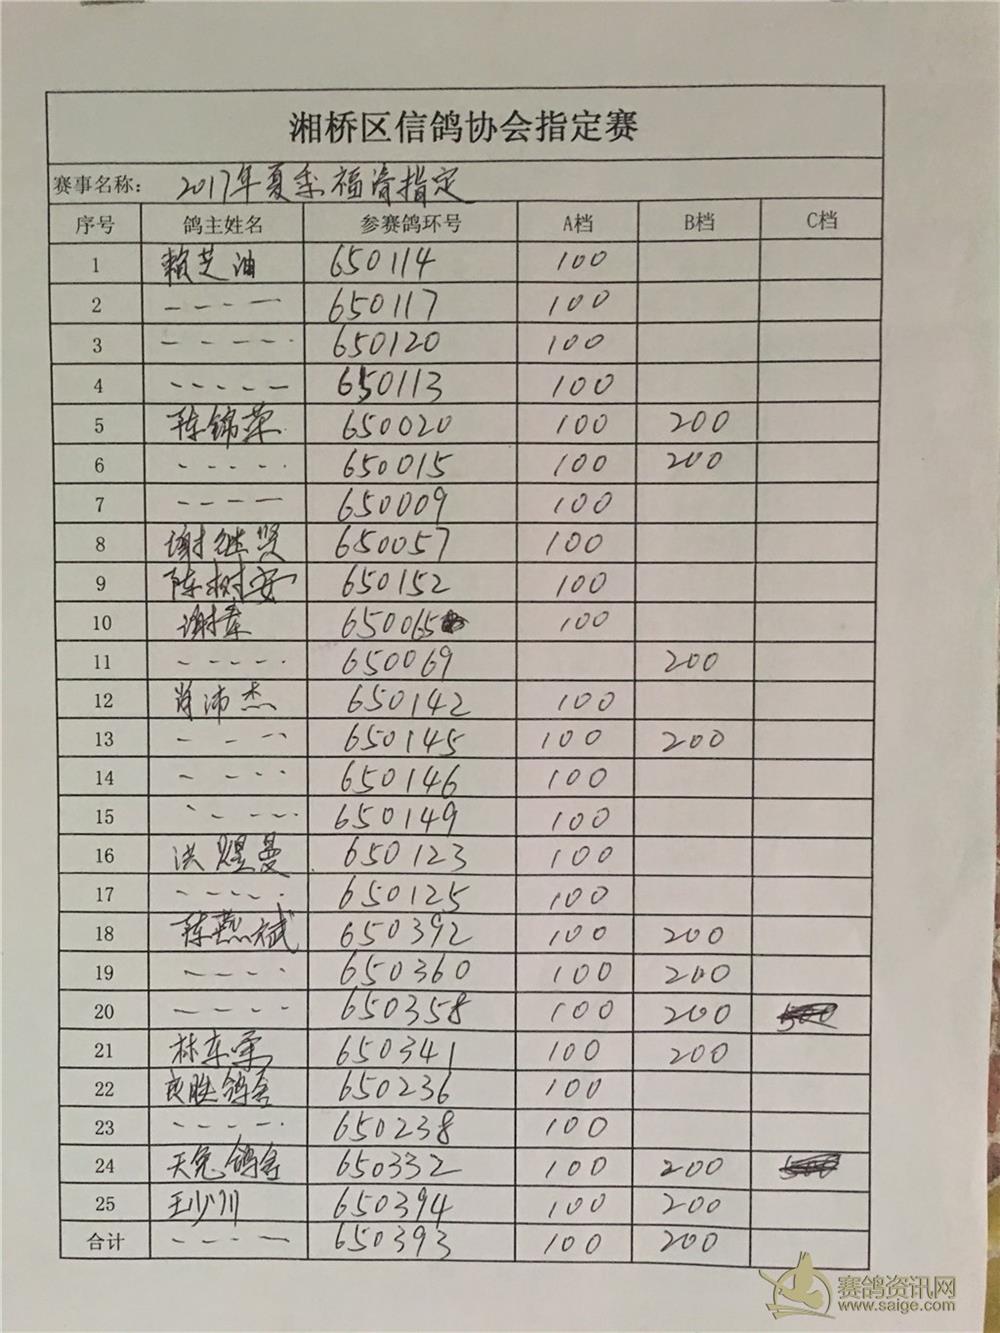 湘桥区信鸽协会指定赛
赛事名称： 2017年夏季福清指定
序号 鸽主姓名 参赛鸽环号 A档 B档 C档
1 赖芝油 650114 100
2 ---- 650117 100
3 ----- 650120 100
4 ----- 650113 100
5 陈锦荣 650020 100 200
6 ----- 650015 100 200
7 ---- 650009 100
8 谢继贤 650057 100
9 陈树安 650152 100
10 谢 650065 100
11 ----- 650069 200
12 肖沛杰 650142 100
13 ---- 650145 100 200
14 ---- 650146 100
15 ----- 650149 100
16 洪煜曼 650123 100
17 ----- 650125 100
18 陈 斌 650392 100 200
19 ---- 650360 100 200
20 ---- 650358 100 200 500
21 林东荣 650341 100 200
22 良胜鸽舍 650236 100
23 ----- 650238 100
24 天兔鸽舍 650332 100 200 500
25 王少川 650394 100 200
合计 ---- 650393 100 200
赛鸽资讯网
www.saige.com